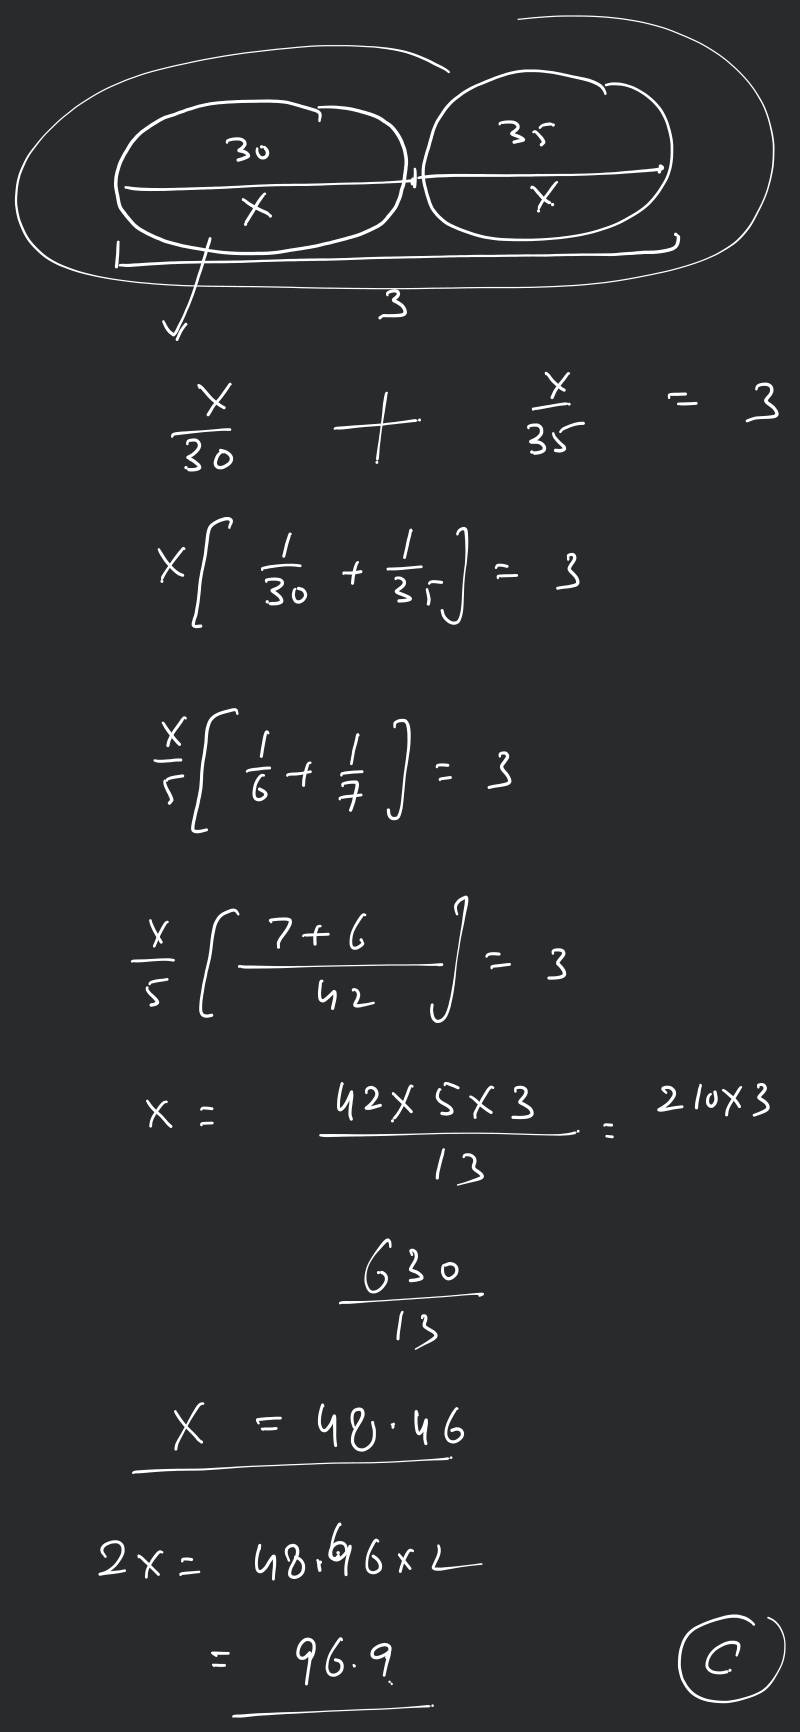 30 35
x x
3
x/30 + x/35 = 3
x[1/30 + 1/35] = 3
x/5[1/6 + 1/7] = 3
x/5[7+6/42] = 3
x = 42x5x3/13 = 210x3
630/13
x = 48.46
2x = 48.46x2
= 96.9 C